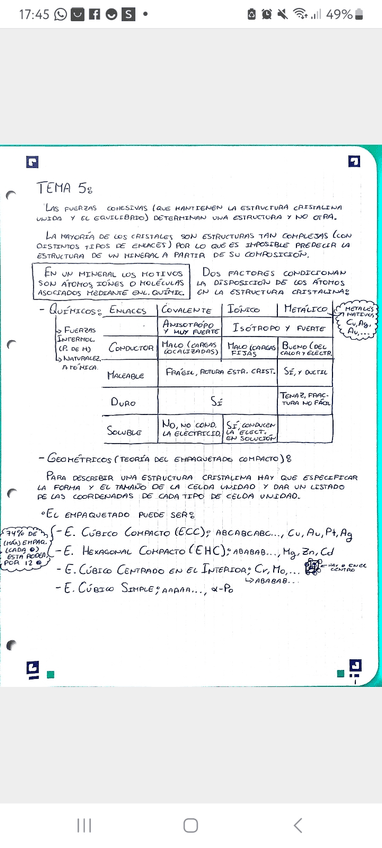 17:45
49%
TEMA 5:
LAS FUERZAS COHESIVAS (QUE MANTIENEN LA ESTRUCTURA CRISTALINA
UNIDA Y EL EQUILIBRIO) DETERMINAN UNA ESTRUCTURA Y NO OTRA.
LA MAYORÍA DE LOS CRISTALES SON ESTRUCTURAS TAN COMPLEJAS (CON
DISTINTOS TIPOS DE ENLACES) POR LO QUE ES IMPOSIBLE PREDECIR LA
ESTRUCTURA DE UN MINERAL A PARTIR DE SU COMPOSICIÓN.
EN UN MINERAL LOS MOTIVOS
SON ÁTOMOS, IONES O MOLÉCULAS
ASOCIADOS MEDIANTE ENL. QUÍMIC.
DOS FACTORES CONDICIONAN
LA DISPOSICIÓN DE LOS ÁTOMOS
EN LA ESTRUCTURA CRISTALINA:
- QUÍMICOS:
FUERZAS
INTERMOL.
(P. DE H)
NATURALEZ.
ATÓMICA
ENLACES COVALENTE IÓNICO METÁLICO
METALES
NATIVOS
Cu, Ag,
Au, ...
ANISOTRÓPO
Y MUY FUERTE
ISÓTROPO Y FUERTE
CONDUCTOR
MALO (CARGAS
LOCALIZADAS)
MALO (CARGAS
FIJAS)
BUENO (DEL
CALOR Y ELECTR.
MALEABLE
FRÁGIL, ROTURA ESTR. CRIST.
SÍ, Y DUCTIL
DURO
SÍ
TENAZ, FRAC-
TURA NO FÁCIL
SOLUBLE
NO, NO COND.
LA ELECTRICID.
SÍ, CONDUCEN
LA ELECT.
EN SOLUCIÓN
- GEOMÉTRICOS (TEORÍA DEL EMPAQUETADO COMPACTO):
PARA DESCRIBIR UNA ESTRUCTURA CRISTALINA HAY QUE ESPECIFICAR
LA FORMA Y EL TAMAÑO DE LA CELDA UNIDAD Y DAR UN LISTADO
DE LAS COORDENADAS DE CADA TIPO DE CELDA UNIDAD.
EL EMPAQUETADO PUEDE SER:
74% DE
(MÁX) EMPAQ.
(CADA
ESTÁ RODEA.
POR 12
- E. CÚBICO COMPACTO (ECC): ABCABCABC..., Cu, Au, Pt, Ag
- E. HEXAGONAL COMPACTO (EHC): ABABAB..., Mg, Zn, Cd
- E. CÚBICO CENTRADO EN EL INTERIOR: Cr, Mo, ...
EN EL
CENTRO
ABABAB...
- E. CÚBICO SIMPLE: AAAAA..., α-Po